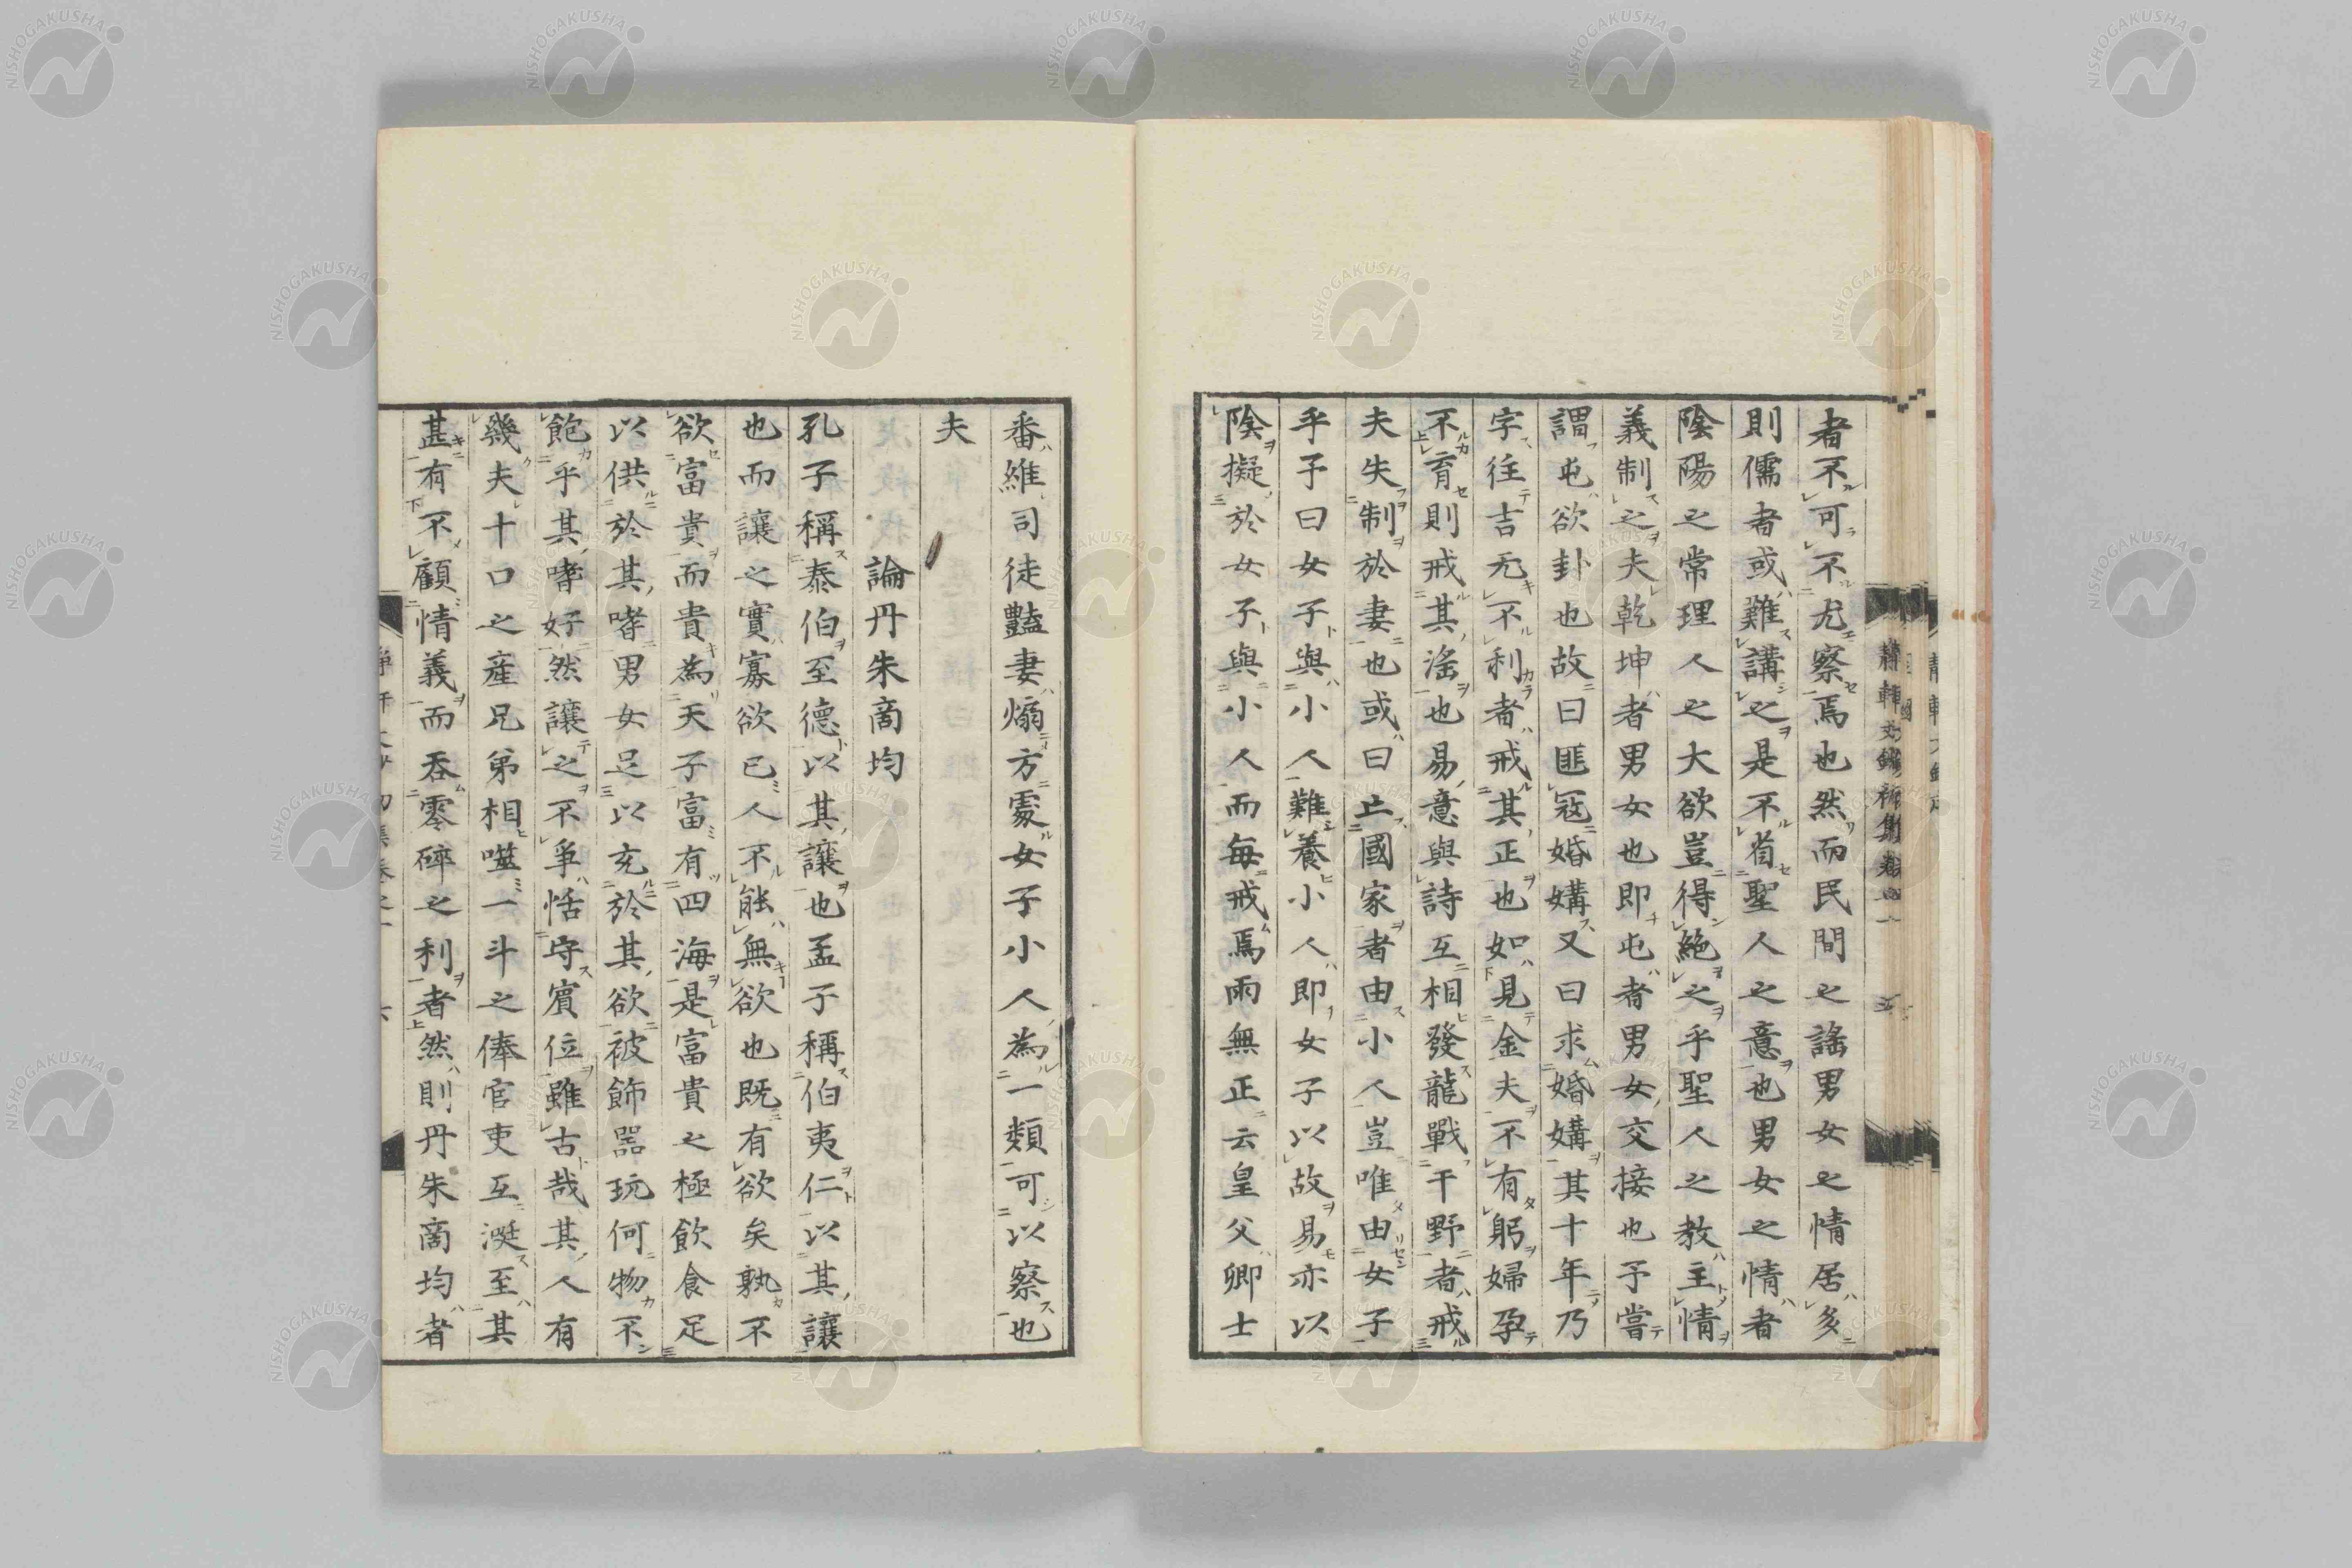 者不可不尤察焉也然而民間之謠男女之情居多
則儒者或難講之是不省聖人之意也男女之情者
陰陽之常理人之大欲豈得絶之乎聖人之教主情
義制之夫乾坤者男女也即屯者男女交接也予嘗
謂屯欲卦也故曰匪冦婚媾又曰求婚媾其十年乃
字往吉无不利者戒其正也如見金夫不有躬婦孕
不育則戒其淫也易意與詩互相發龍戰于野者戒
夫失制於妻也或曰亡國家者由小人豈唯由女子
乎予曰女子與小人難養小人即女子以故易亦以
陰擬於女子與小人而每戒焉雨無正云皇父卿士
番維司徒豔妻煽方處女子小人為一類可以察也
夫
論丹朱商均
孔子稱泰伯至德以其讓也孟子稱伯夷仁以其讓
也而讓之實寡欲已人不能無欲也既有欲矣孰不
欲富貴而貴為天子富有四海是富貴之極飲食足
以供於其嗜男女足以充於其欲被飾器玩何物不
飽乎其嗜好然讓之不爭恬守賓位雖古哉其人有
幾夫十口之產兄弟相噬一斗之俸官吏互涎至其
甚有不顧情義而吞零碎之利者然則丹朱商均者
NISHOGAKUSHA